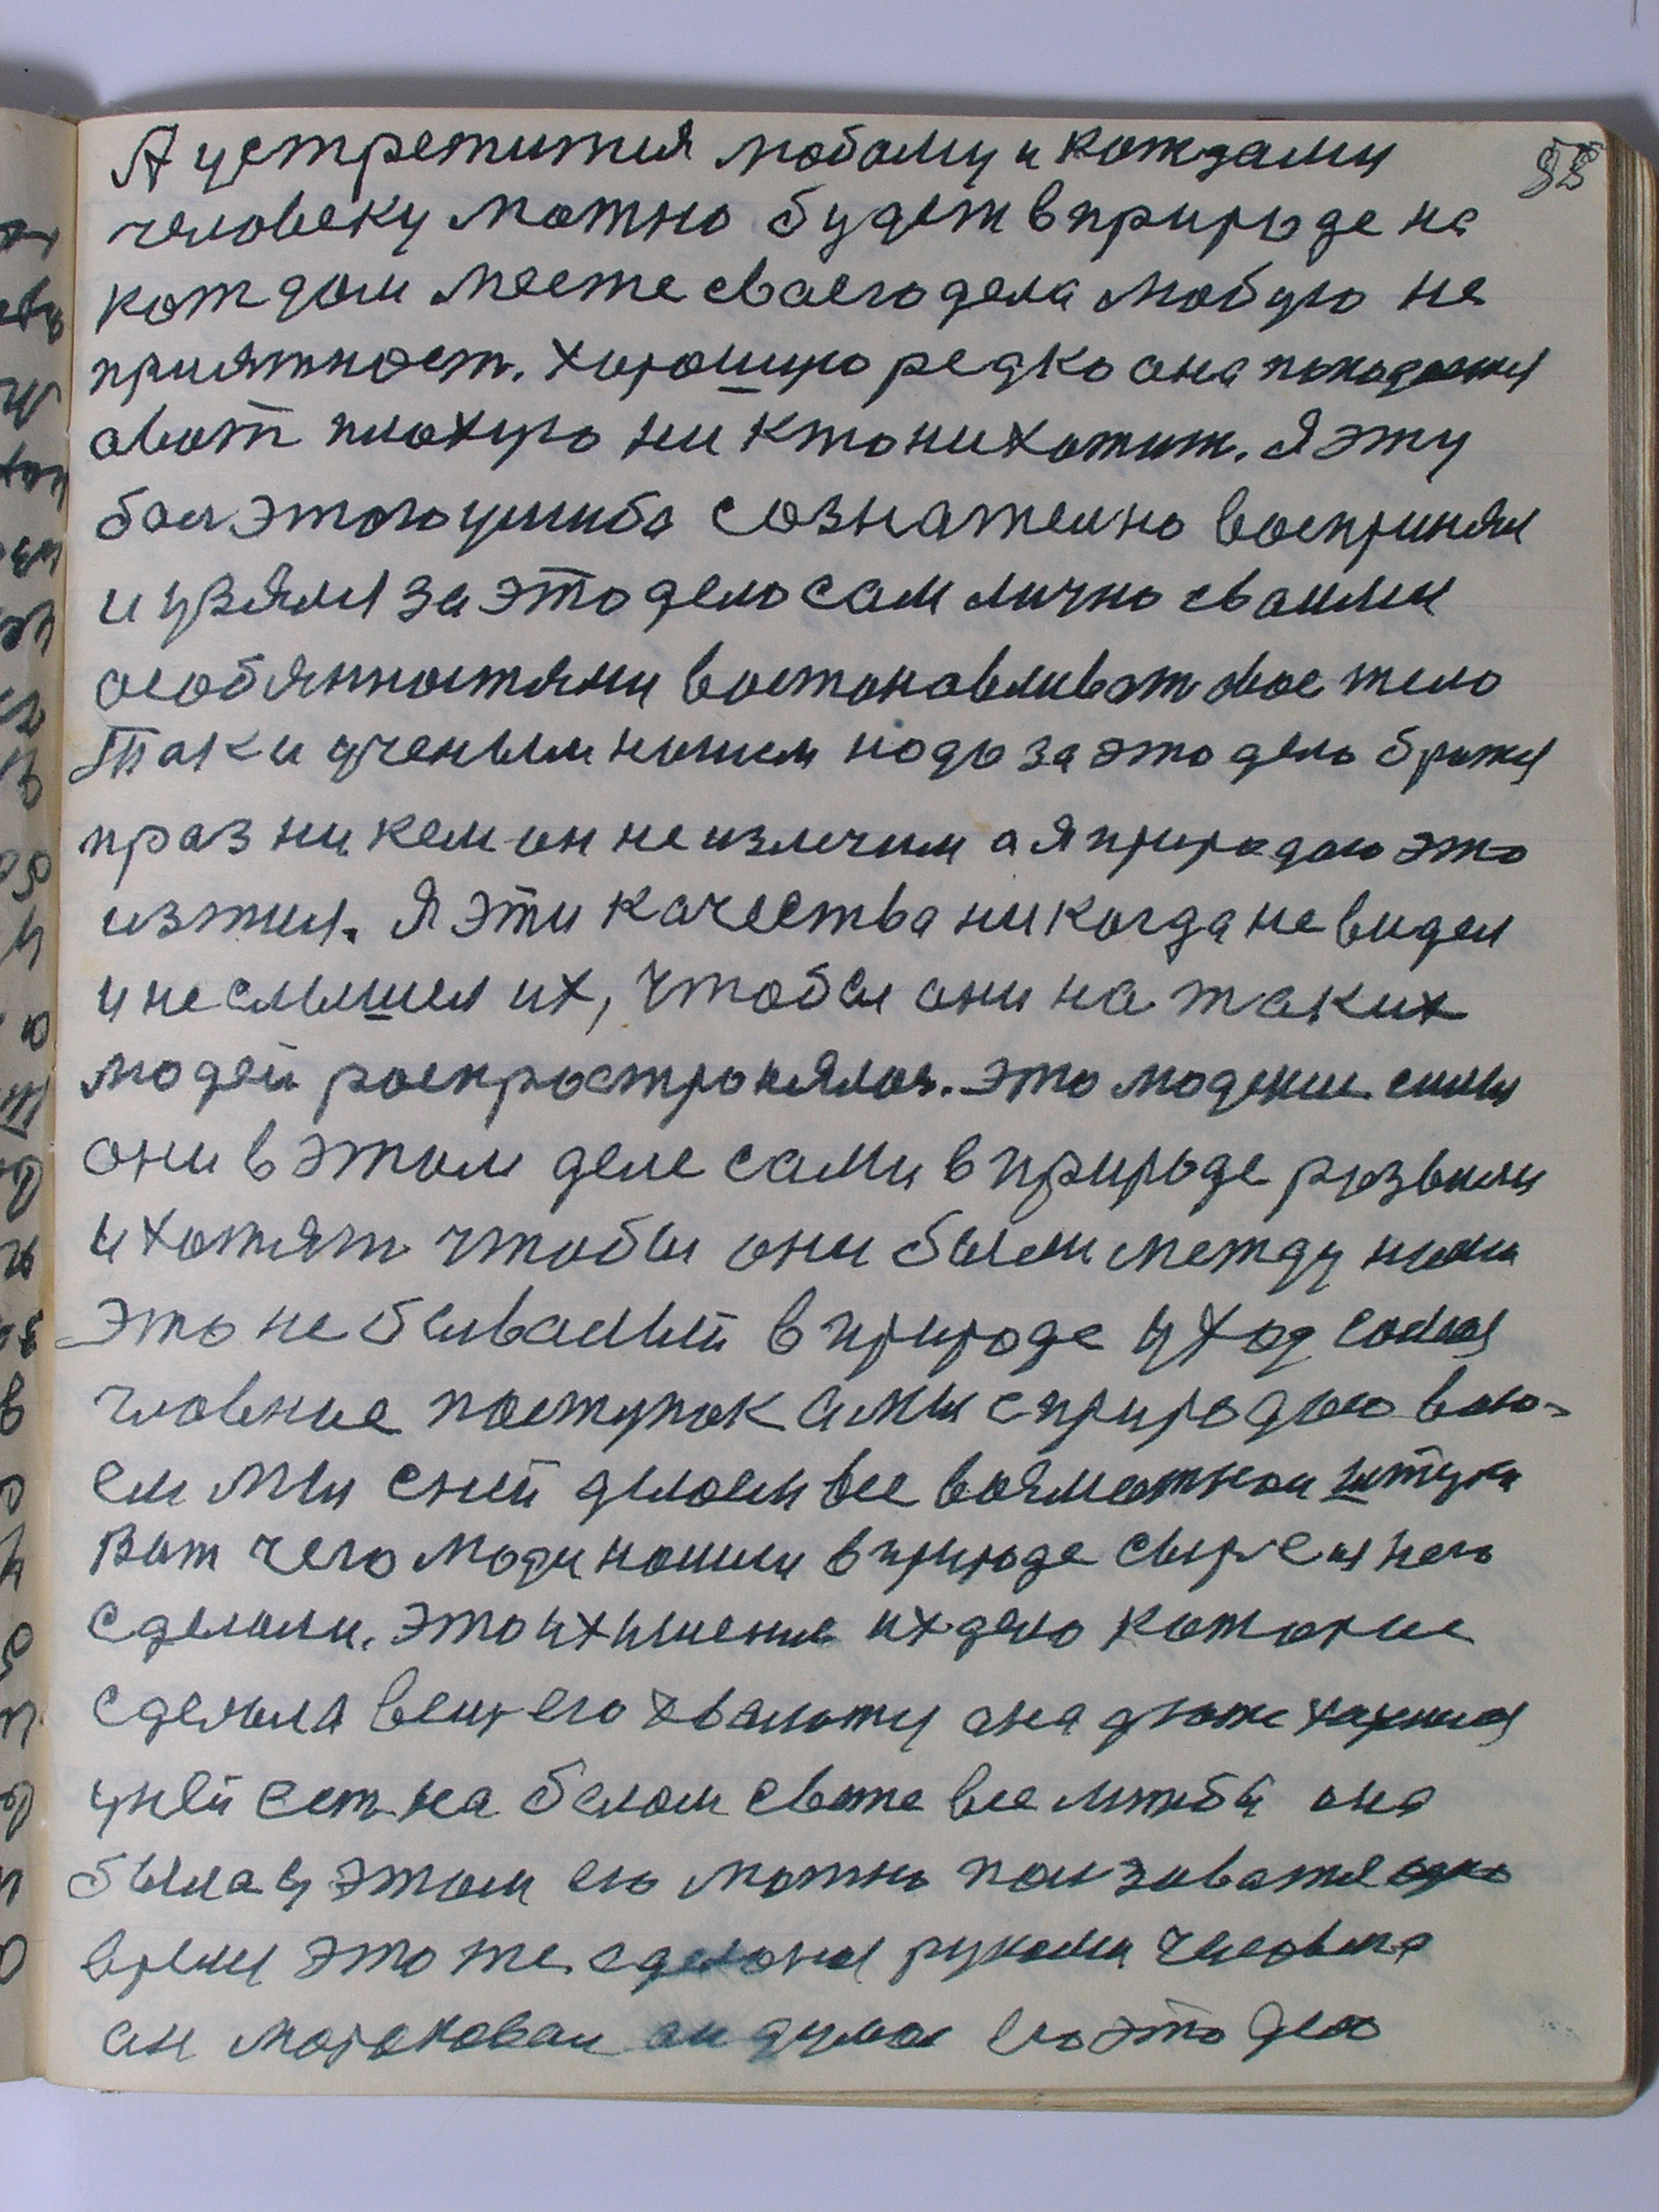 85
А устретится любому и каждаму
человеку можно будет в природе на
каждом месте сваего дела любую не
приятност. хорошую редко она попадается
авот плохую ни кто нихотит. Я эту
бол этого ушиба сознателно воспринял
и узялся за это дело сам лично сваими
особяностями востонавливат твое тело
Так и ученым нашим надо за это дело братся
праз ни кем он не излечим а я природаю это
изжил. Я эти качества никогда не видел
и не слышел их, чтобы они на таких
людей роспростронялос. это людские силы
они в этом деле сами в природе розвили
и хотят чтобы они были между ними
это не бывалый в природе уход самая
гловные поступок а мы с природаю вою-
ем мы сней делоем все возможнаи штуки
Вот чего люди ношли в природе сырье из него
сделали. это их умение их дело которые
сделоли вещ его хвалоту она даже
у ней ест на белом свете все штобы она
была у этом ею можно ползоватся
время это же сделоли руками человека
он мороковал он думал ею это дело